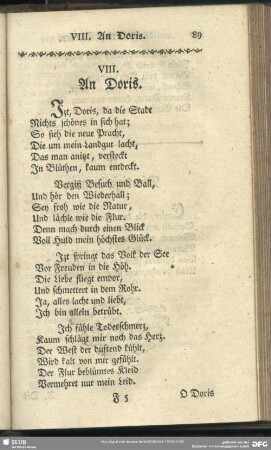 VIII. An Doris. 89
VIII.
An Doris.
Jzt, Doris, da die Stade
Nichts schönes in sich hat;
So sieh die neue Pracht,
Die um mein Landgut lacht,
Das man anizt, versteckt
In Blüthen, kaum entdeckt.
Vergiß Besuch und Ball,
Und hör den Wiederhall;
Sey froh wie die Natur,
Und lächle wie die Flur.
Denn mach durch einen Blick
Voll Huld mein höchstes Glück.
Jzt springt das Volk der See
Vor Freuden in die Höh.
Die Liebe fliegt empor,
Und schmettert in dem Rohr.
Ja, alles lacht und liebt,
Ich bin allein betrübt.
Ich fühle Todesschmerz,
Kaum schlägt mir noch das Herz.
Der West der duftend kühlt,
Wird kalt von mir gefühlt.
Der Flur beblümtes Kleid
Vermehret nur mein Leid.
F 5 O Doris
SLUB